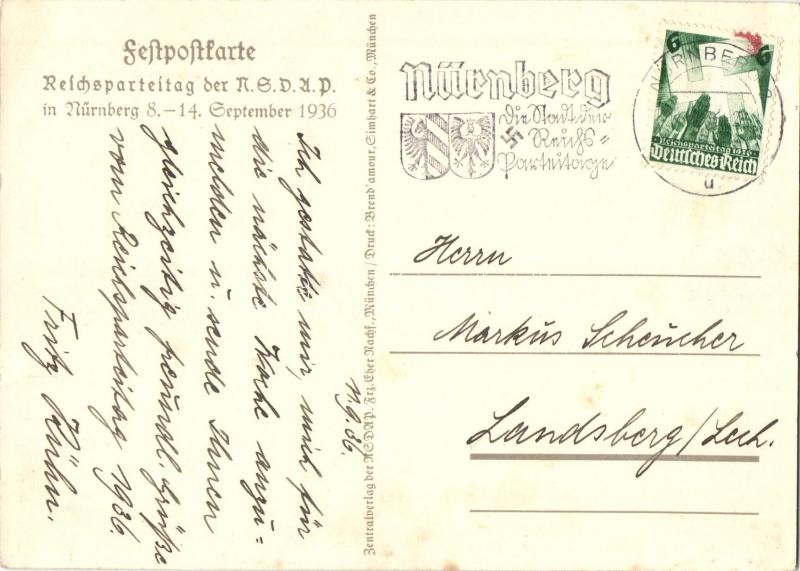 Festpostkarte
Reichsparteitag der N.S.D.A.P.
in Nürnberg 8.–14. September 1936
11.9.36.
Ich gestatte mir, mich für
die nächste Woche anzu=
melden u. sende Ihnen
gleichzeitig freundl. Grüße
vom Reichsparteitag 1936.
Fritz Kühn.
Zentralverlag der NSDAP. Frz. Eher Nachf., München / Druck: Brend'amour, Simhart & Co., München
Nürnberg
Die Stadt der
Reichs=
parteitage
NÜRNBERG
u
6 6
Reichsparteitag 1936
Deutsches Reich
Herrn
Markus Scheucher
Landsberg/Lech.